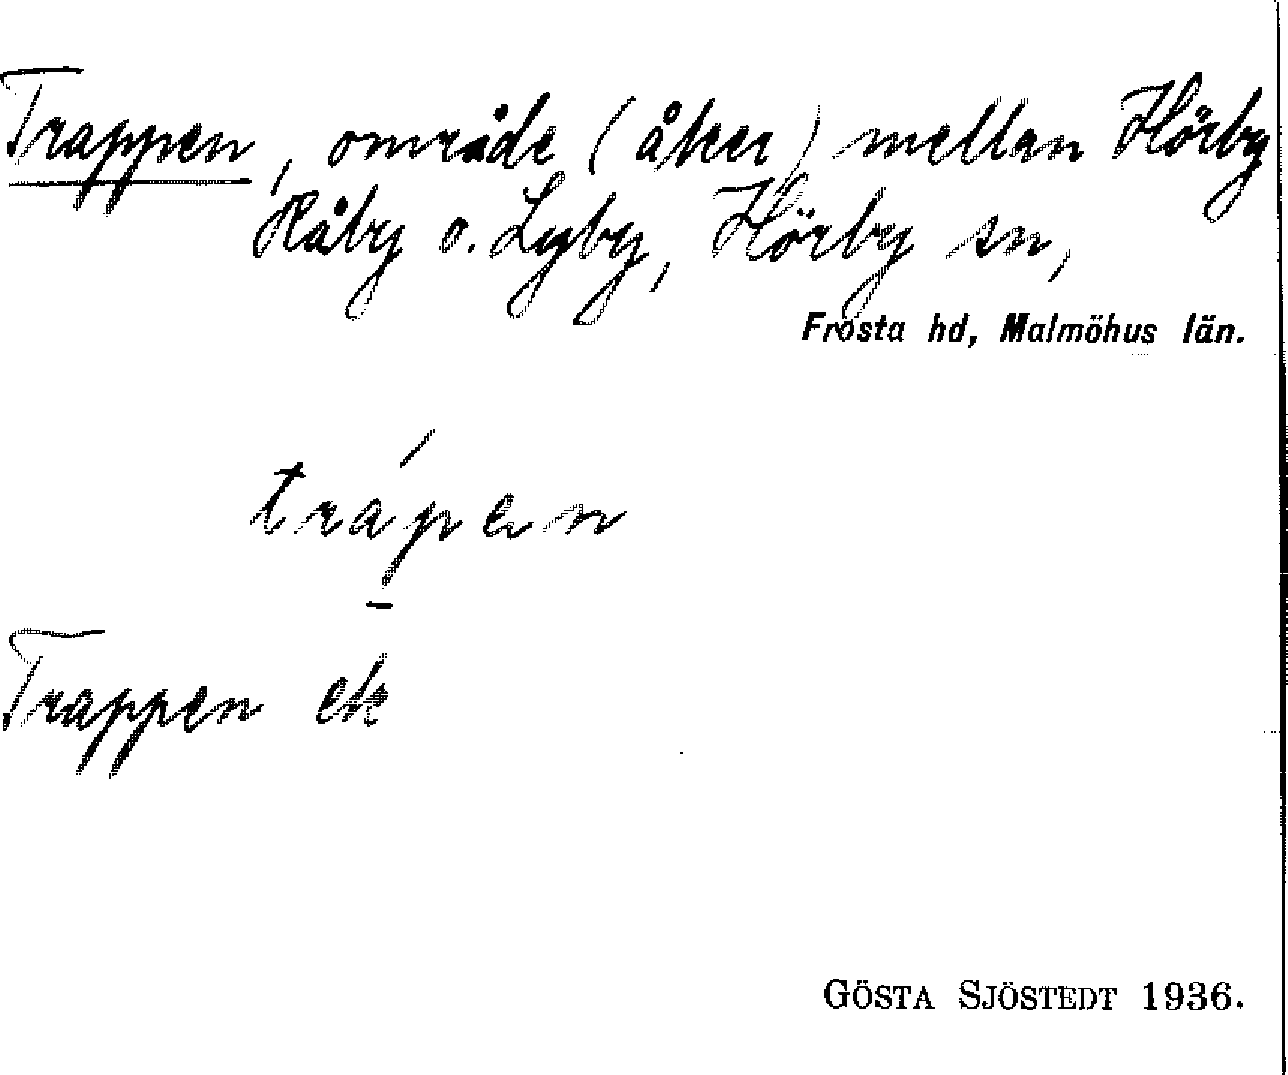 Trappen, område (åker) mellan Hörby
Råby o. Lyby, Hörby sn,
Frosta hd, Malmöhus län.
trápen
Trappen ek
GÖSTA SJÖSTEDT 1936.